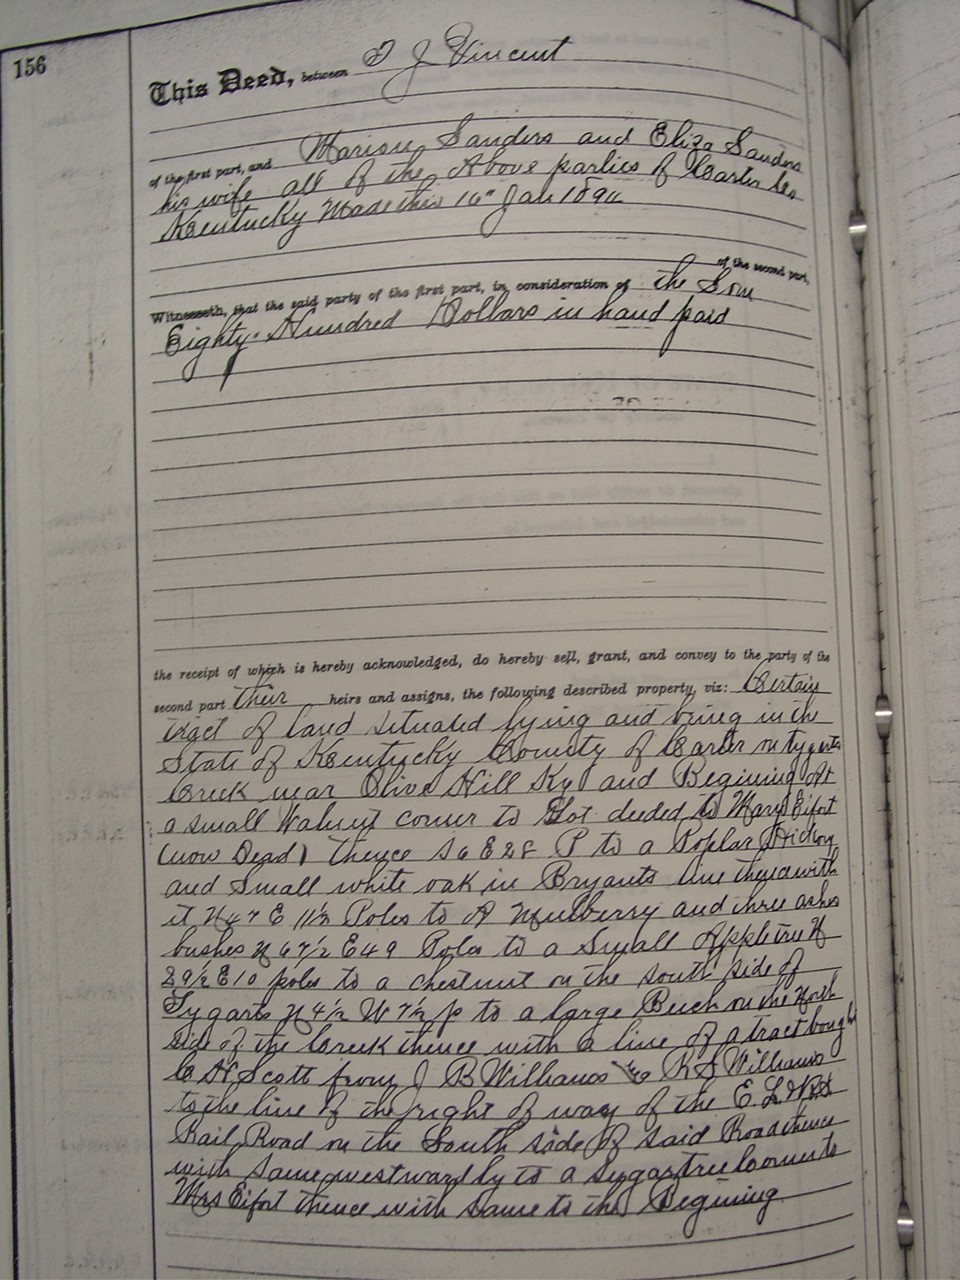 156
This Deed, between J Vincent
of the first part, and Marion Sanders and Eliza Sanders
his wife all of the Above parties of Carter Co
Kentucky Made this 16" Jan 189
of the second part,
Witnesseth, that the said party of the first part, in consideration of the Sum
Eighty Hundred Dollars in hand paid
the receipt of which is hereby acknowledged, do hereby sell, grant, and convey to the party of the
second part their heirs and assigns, the following described property, viz: Certain
tract of land situated lying and being in the
State of Kentucky County of Carter on tygarts
Creek near Olive Hill Ky and Begining At
a small Walnut corner to Lot deeded to Mary Eifort
(now Dead) thence S 6 E 28 P to a Poplar Hickory
and Small white oak in Bryants line thence with
it N 47 E 11½ Poles to A Mulberry and three ashes
bushes N 67½ E 49 Poles to a Small Appletree N
29½ E 10 poles to a chestnut on the south side of
Tygarts N 4½ W 7½ p to a large Beech on the North
Side of the Creek thence with a line of a tract bought
Scott from J B Williams R S Williams
to the line of the right of way of the E L &
Rail Road on the South side of said Road thence
with same westwardly to a sugartree Corner to
Mrs Eifort thence with same to the Begining